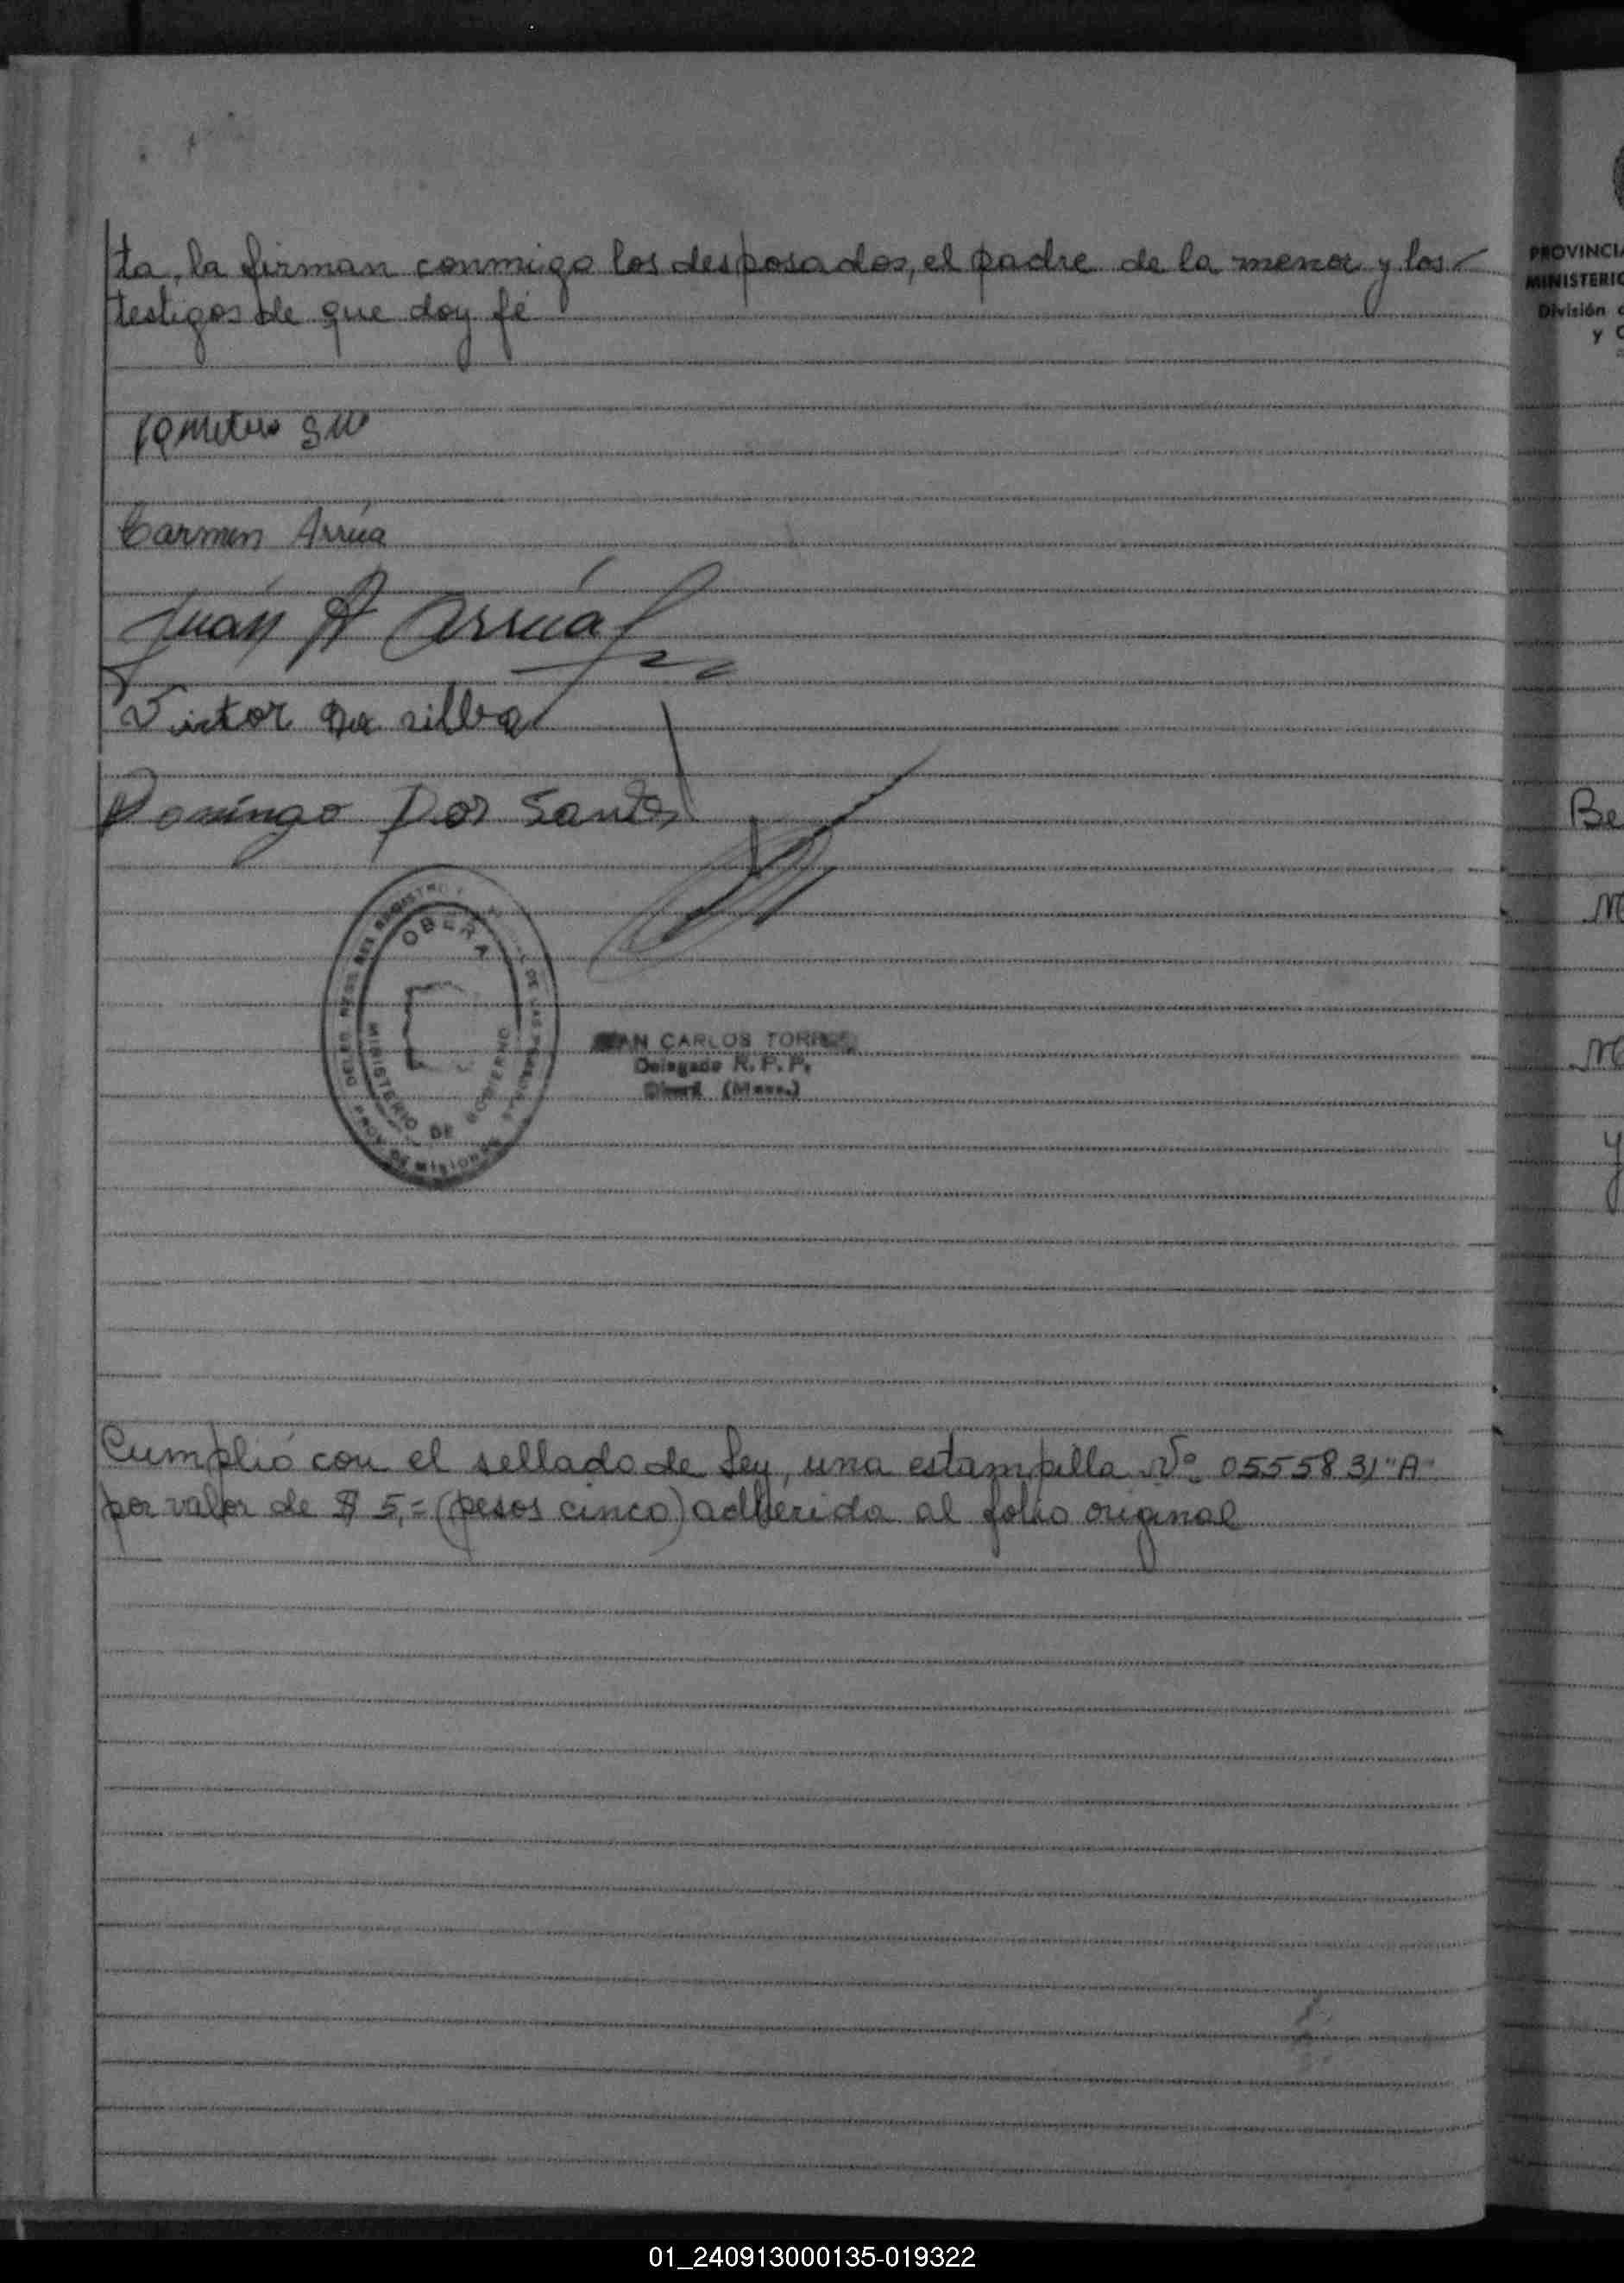 ta, la firman conmigo los desposados, el padre de la menor y los
testigos de que doy fé
Carmen Arrúa
Juan A Arrúa
Victor Da silba
Domingo Dos Santos
OBERA
MINISTERIO DE GOBIERNO
PROV. DE MISIONES
CARLOS TORRES
Delegado R. P. P.
Oberá (Mnes.)
Cumplió con el sellado de Ley, una estampilla Nº 0555831"A"
por valor de $ 5,= (pesos cinco) adherida al folio original
PROVINCIA
MINISTERIO
División
y
Be
01_240913000135-019322